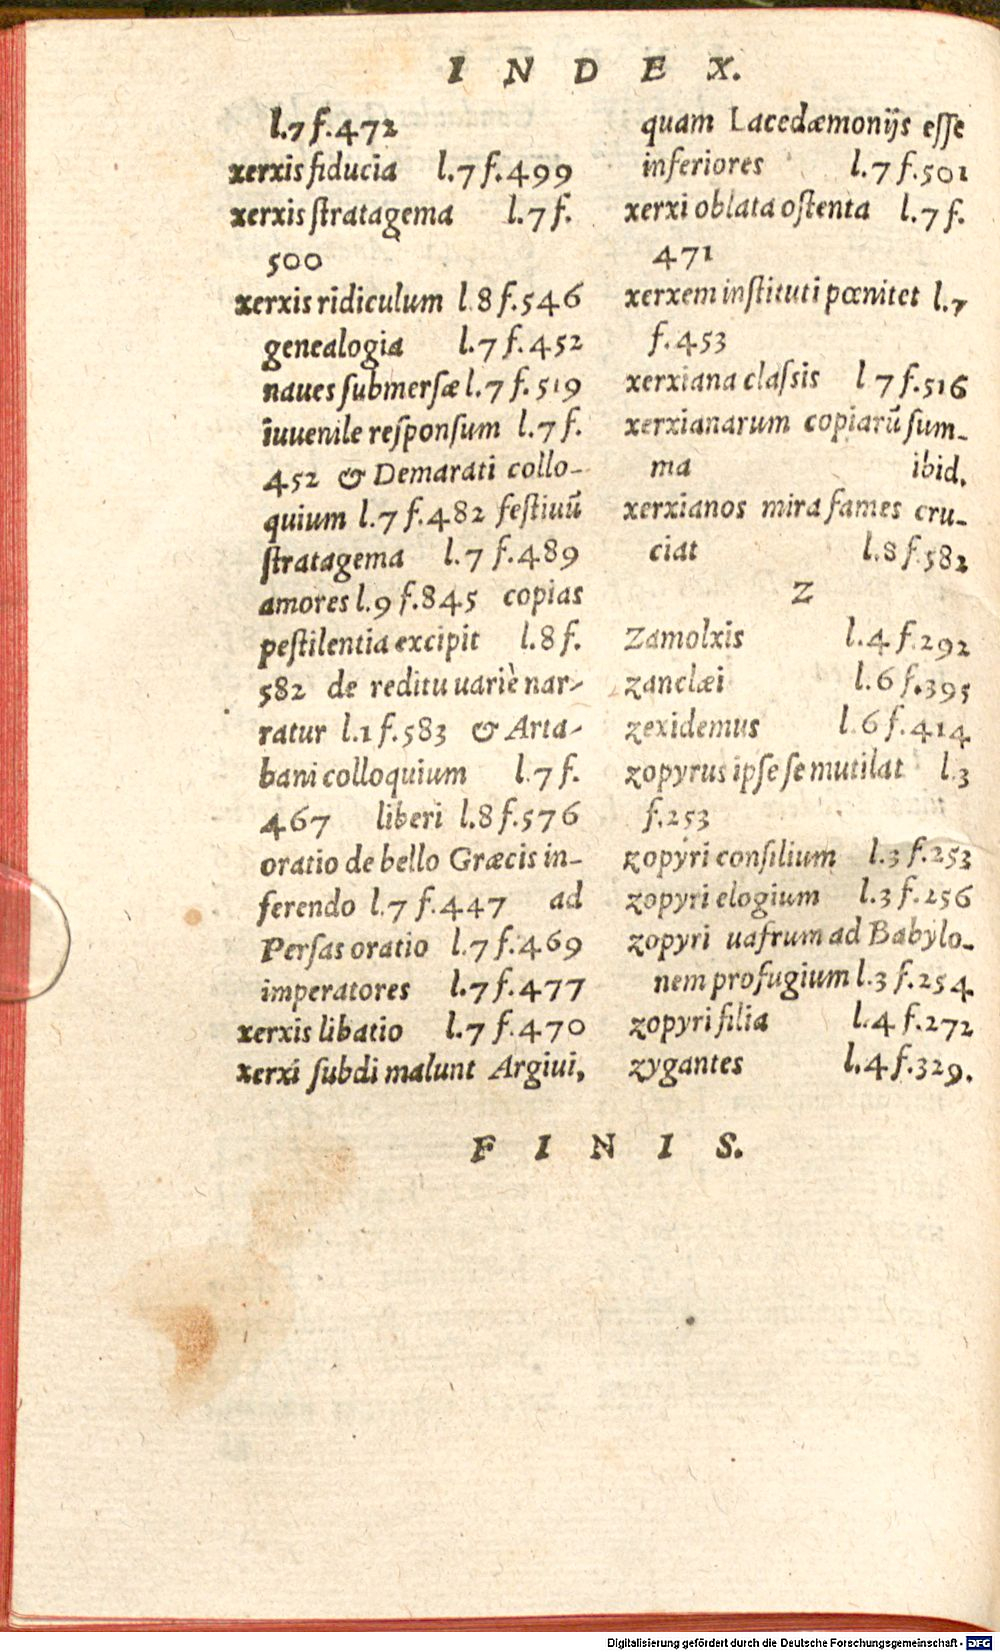 INDEX.
l.7 f.472
xerxis fiducia l.7 f.499
xerxis ſtratagema l.7 f.
500
xerxis ridiculum l.8 f.546
genealogia l.7 f.452
naues ſubmerſæ l.7 f.519
iuuenile reſponſum l.7 f.
452 & Demarati collo-
quium l.7 f.482 feſtiuũ
ſtratagema l.7 f.489
amores l.9 f.845 copias
peſtilentia excipit l.8 f.
582 de reditu uariè nar-
ratur l.1 f.583 & Arta-
bani colloquium l.7 f.
467 liberi l.8 f.576
oratio de bello Græcis in-
ferendo l.7 f.447 ad
Perſas oratio l.7 f.469
imperatores l.7 f.477
xerxis libatio l.7 f.470
xerxi ſubdi malunt Argiui,
quam Lacedæmonijs eſſe
inferiores l.7 f.501
xerxi oblata oſtenta l.7 f.
471
xerxem inſtituti pœnitet l.7
f.453
xerxiana claſsis l 7 f.516
xerxianarum copiarũ ſum-
ma ibid.
xerxianos mira fames cru-
ciat l.8 f.582
Z
Zamolxis l.4 f.292
zanclæi l.6 f.395
zexidemus l.6 f.414
zopyrus ipſe ſe mutilat l.3
f.253
zopyri conſilium l.3 f.253
zopyri elogium l.3 f.256
zopyri uafrum ad Babylo-
nem profugium l.3 f.254
zopyri filia l.4 f.272
zygantes l.4 f.329.
FINIS.
Digitalisierung gefördert durch die Deutsche Forschungsgemeinschaft - DFG